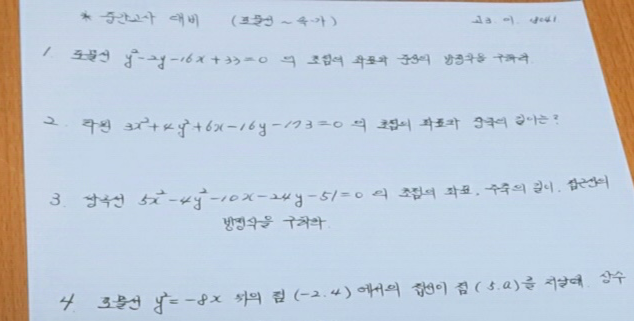 * 중간고사 대비 (포물선 ~ 음가) 고3. 이.
1. 포물선 y²-2y-16x+33=0 의 초점의 좌표와 준선의 방정식을 구하라
2. 타원 3x²+4y²+6x-16y-173=0 의 초점의 좌표와 장축의 길이는?
3. 쌍곡선 5x²-4y²-10x-24y-51=0 의 초점의 좌표, 주축의 길이, 점근선의
방정식을 구하라.
4. 포물선 y²=-8x 위의 점 (-2.4) 에서의 접선이 점 (5.a)를 지날때 상수